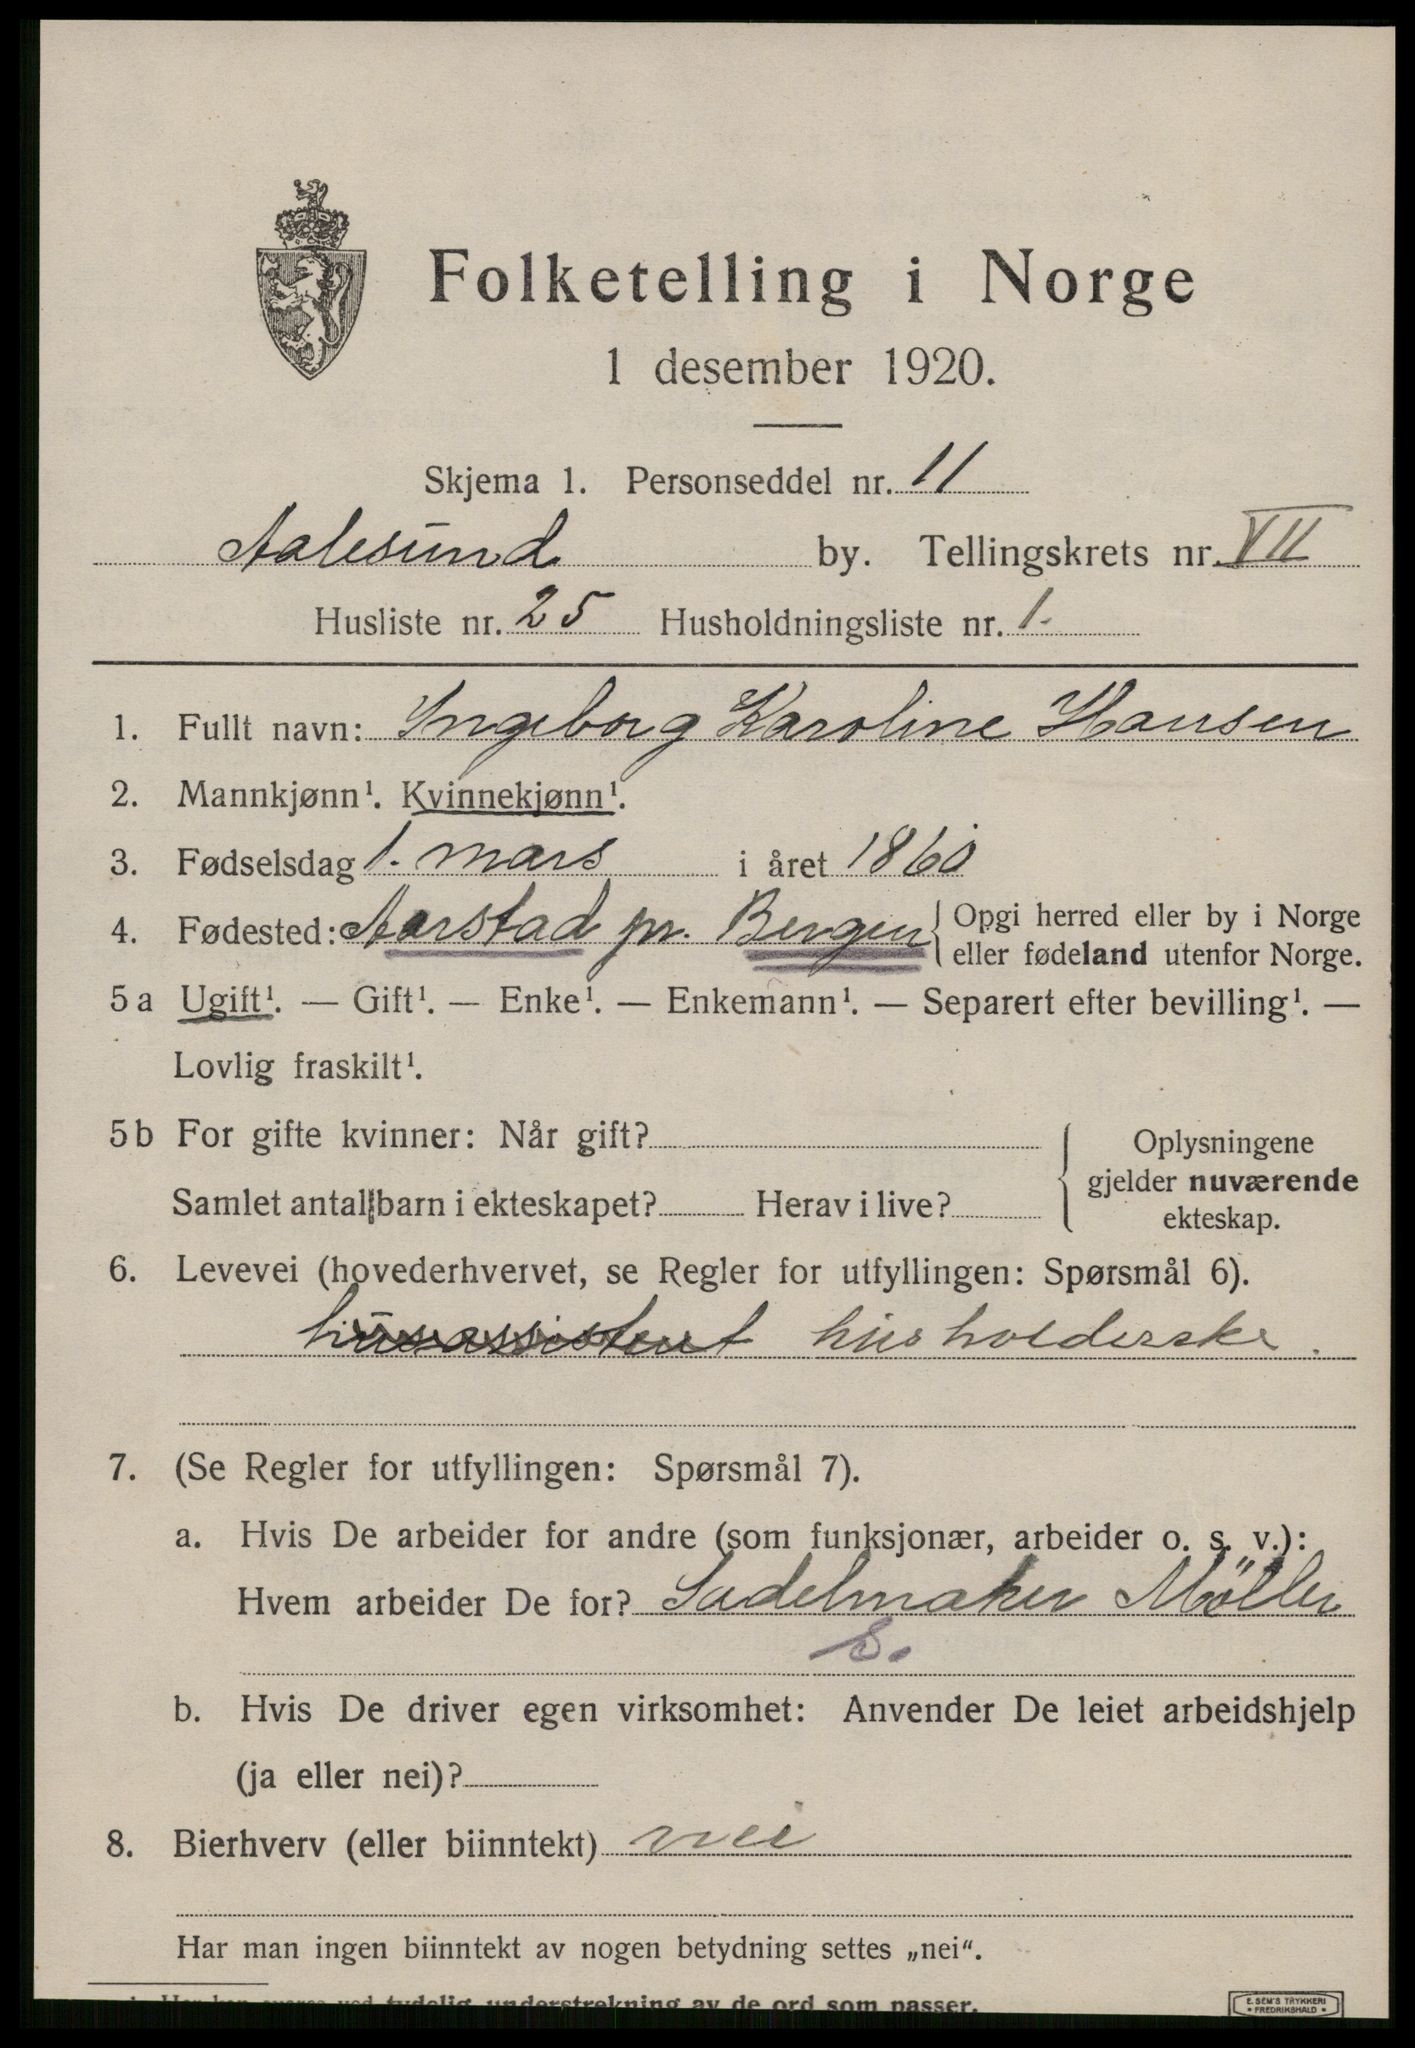 Folketelling i Norge
1 desember 1920.
Skjema 1. Personseddel nr. 11
Aalesund by. Tellingskrets nr. VII
Husliste nr. 25 Husholdningsliste nr. 1.
1. Fullt navn: Ingeborg Karoline Hansen
2. Mannkjønn¹. Kvinnekjønn¹.
3. Fødselsdag 1. mars i året 1860
4. Fødested: Aarstad pr. Bergen { Opgi herred eller by i Norge
eller fødeland utenfor Norge.
5 a Ugift¹. — Gift¹. — Enke¹. — Enkemann¹. — Separert efter bevilling¹. —
Lovlig fraskilt¹.
5 b For gifte kvinner: Når gift?
Samlet antal barn i ekteskapet? Herav i live?
{ Oplysningene
gjelder nuværende
ekteskap.
6. Levevei (hovederhvervet, se Regler for utfyllingen: Spørsmål 6).
husassistent husholderske.
7. (Se Regler for utfyllingen: Spørsmål 7).
a. Hvis De arbeider for andre (som funksjonær, arbeider o. s. v.):
Hvem arbeider De for? Sadelmaker Möller
b. Hvis De driver egen virksomhet: Anvender De leiet arbeidshjelp
(ja eller nei)?
8. Bierhverv (eller biinntekt) nei
Har man ingen biinntekt av nogen betydning settes „nei“.
tydelig understrekning av de ord som passer.
E. SEM'S TRYKKERI
• FREDRIKSHALD •